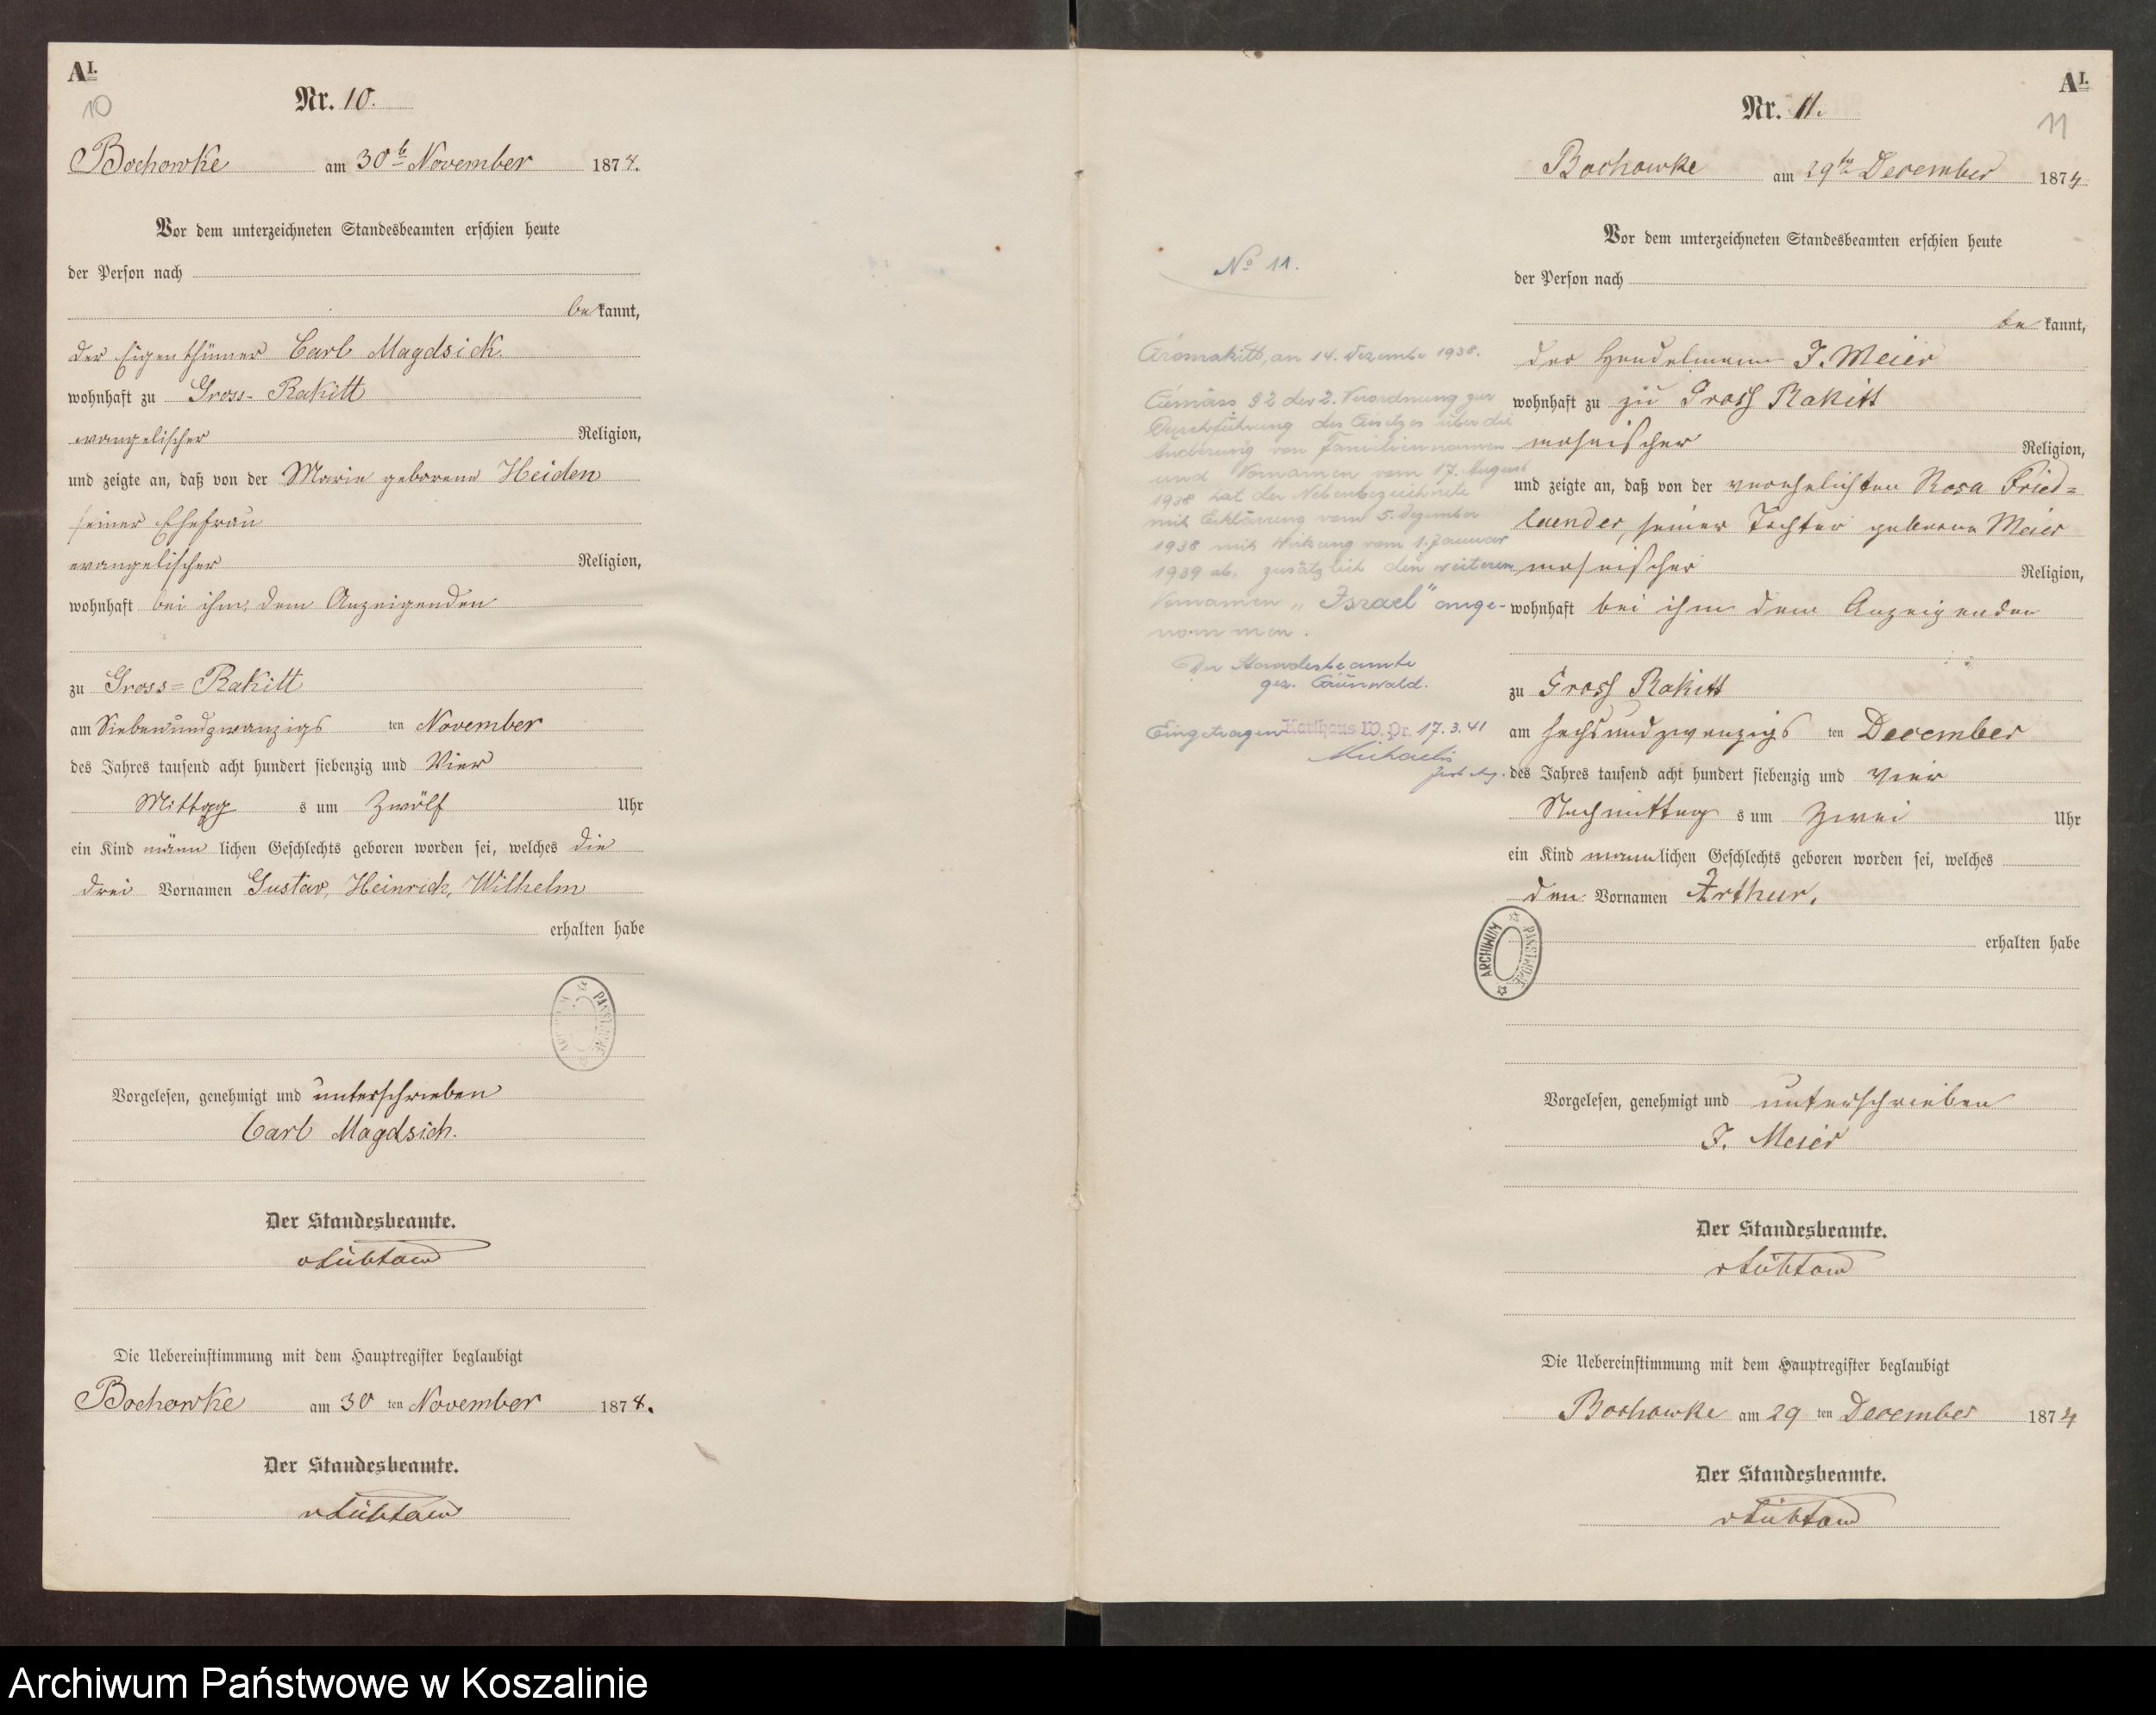 A I.
10
Nr. 10.
Bochowke am 30t November 1874.
Vor dem unterzeichneten Standesbeamten erschien heute
der Person nach
bekannt,
der Eigenthümer Carl Magdsick
wohnhaft zu Gross-Rakitt
evangelischer Religion,
und zeigte an, daß von der Marie geborene Heiden
seiner Ehefrau
evangelischer Religion,
wohnhaft bei ihm, dem Anzeigenden
zu Gross=Rakitt
am Siebenundzwanzigs ten November
des Jahres tausend acht hundert siebenzig und Vier
Mittag s um Zwölf Uhr
ein Kind männ lichen Geschlechts geboren worden sei, welches die
drei Vornamen Gustav, Heinrich, Wilhelm
erhalten habe
Vorgelesen, genehmigt und unterschrieben
Carl Magdsich.
Der Standesbeamte.
Die Uebereinstimmung mit dem Hauptregister beglaubigt
Bochowke am 30 ten November 1874.
Der Standesbeamte.
A I.
11
Nr. 11.
Bochowke am 29ten December 1874
Vor dem unterzeichneten Standesbeamten erschien heute
der Person nach
be kannt,
der Handelsmann J. Meier
wohnhaft zu zu Gross Rakitt
mosaischer Religion,
und zeigte an, daß von der verehelichten Rosa Fried=
laender, seiner Tochter geborene Meier
mosaischer Religion,
wohnhaft bei ihm dem Anzeigenden
zu Gross Rakitt
am sechsundzwanzigs ten December
des Jahres tausend acht hundert siebenzig und vier
Nachmittag s um zwei Uhr
ein Kind männlichen Geschlechts geboren worden sei, welches
den Vornamen Arthur.
erhalten habe
Vorgelesen, genehmigt und unterschrieben
J. Meier
Der Standesbeamte.
Die Uebereinstimmung mit dem Hauptregister beglaubigt
Bochowke am 29 ten December 1874
Der Standesbeamte.
No 11.
Grossrakitt, am 14. Dezember 1938.
Gemäss § 2 der 2. Verordnung zur
Durchführung des Gesetzes über die
Änderung von Familiennamen
und Vornamen vom 17. August
1938 hat der Nebenbezeichnete
mit Erklärung vom 5. Dezember
1938 mit Wirkung vom 1. Januar
1939 ab, zusätzlich den weiteren
Vornamen „Israel" ange-
nommen.
Der Standesbeamte
gez. Grünwald.
Eingetragen Karthaus W. Pr. 17.3.41
Michaelis
ARCHIWUM PAŃSTWOWE
Archiwum Państwowe w Koszalinie